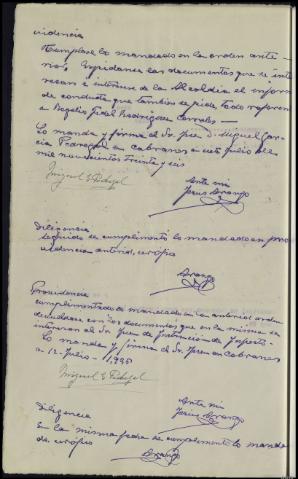 videncia
Cumplase lo mandado en la orden ante-
rior. Expidanse los documentos que se inte-
resan e interese de la Alcaldia el informe
de conducta que tambien se pide, todo referente
a Rogelio Fidel Rodriguez Corrales.-
Lo manda y firma el Sr. Juez D. Miguel Gar-
cia Pedregal en Cabranes a siete Julio de
mil novecientos treinta y seis
Miguel G Pedregal
Ante mi
Jesus Arango
Diligencia
Seguido se cumplimentó lo mandado en pro-
videncia anterior, certifico
Arango
Providencia
Cumplimentado lo mandado en la anterior orden
con los documentos que en la misma se
interesan al Sr Juez de Instrucción
Lo manda y firma el Sr Juez en Cabranes
a 12-Julio-1936
Miguel G Pedregal
Ante mi
Jesus Arango
Diligencia
En la misma fecha se cumplimentó lo manda-
do, certifico
Arango